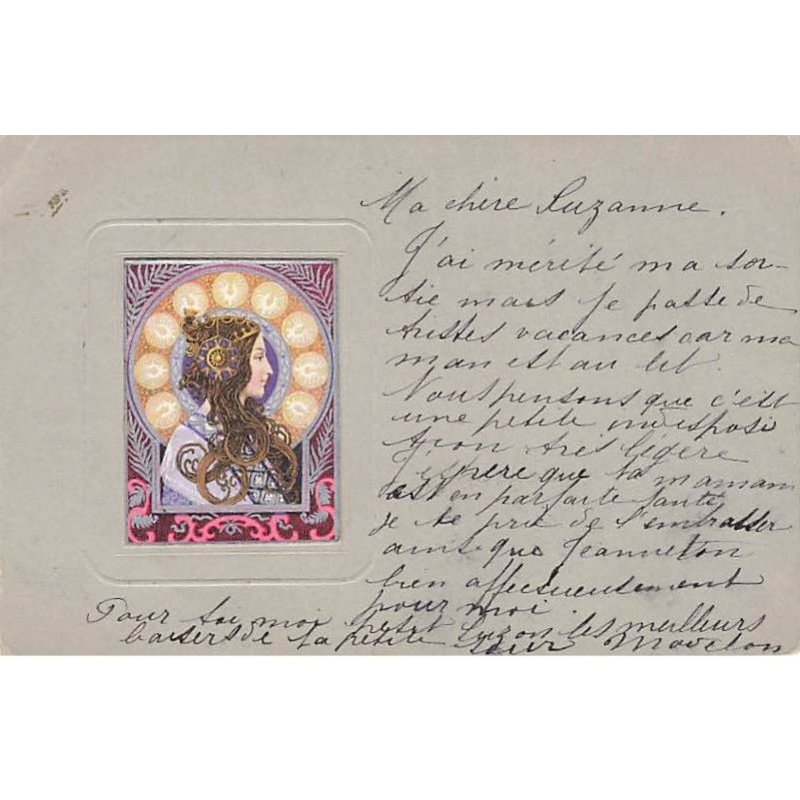 Ma chère Suzanne.
J'ai mérité ma sor-
tie mais je passe de
tristes vacances car ma
man est au lit.
Nous pensons que c'est
une petite indisposi
tion très légère
J'espère que ta maman
est en parfaite santé
Je te prie de l'embrasser
ainsi que Jeanneton
bien affectueusement
pour moi
Pour toi moi petit Suzon les meilleurs
baisers de ta petite sœur